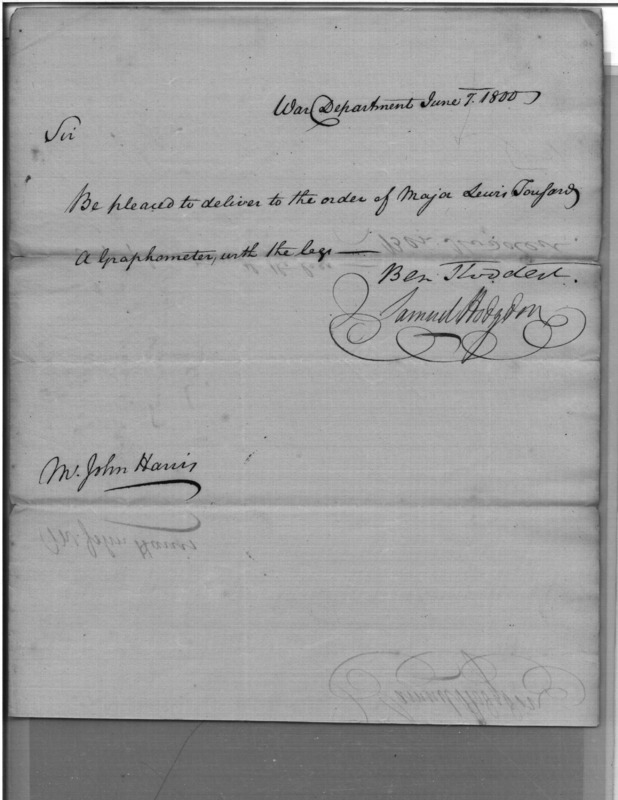 War Department June 7. 1800
Sir
Be pleased to deliver to the order of Major Lewis Tousard
A Graphometer, with the legs —
Ben: Stoddert.
Samuel Hodgdon
Mr. John Harris